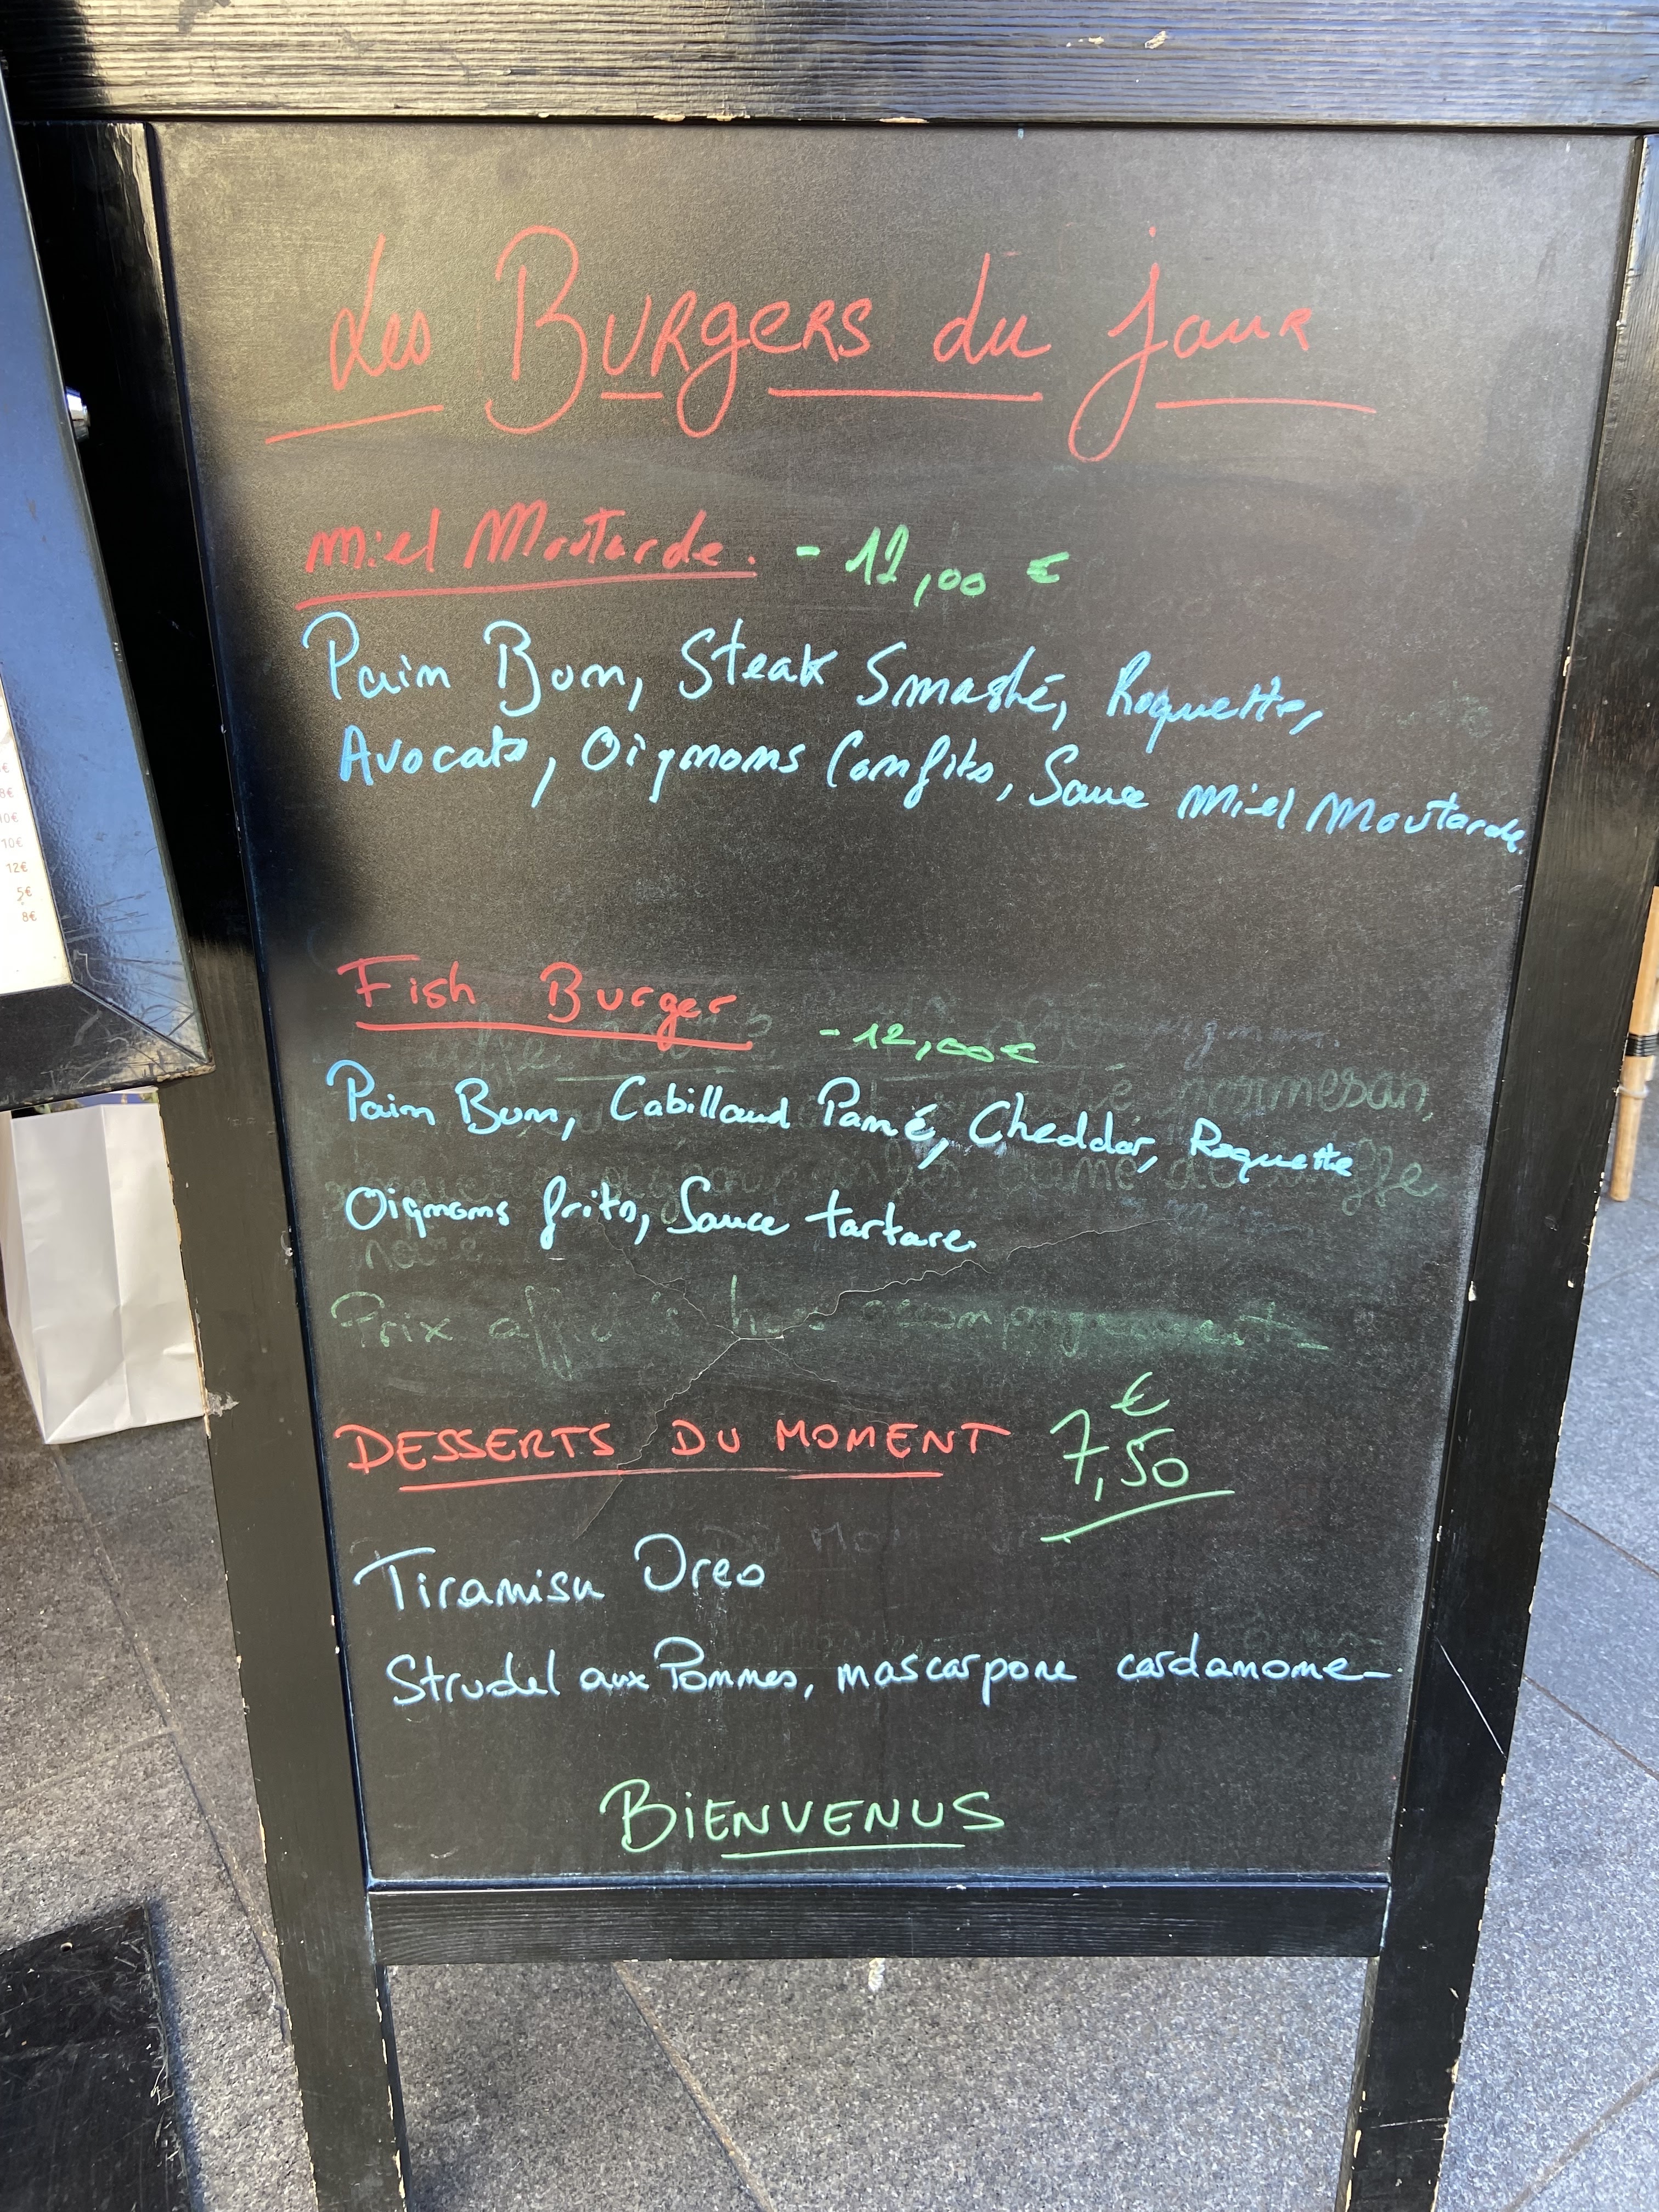 Les Burgers du jour
Miel Moutarde. - 12,00 €
Pain Bun, Steak Smashé, Roquette,
Avocats, Oignons Confits, Sauce Miel Moutarde.
Fish Burger
- 12,00 €
Pain Bun, Cabillaud Pané, Cheddar, Roquette
Oignons frits, Sauce tartare.
Prix affichés hors accompagnements
DESSERTS DU MOMENT 7,50 €
Tiramisu Oreo
Strudel aux Pommes, mascarpone cardamome.
BIENVENUS
8€
10€
10€
12€
5€
8€